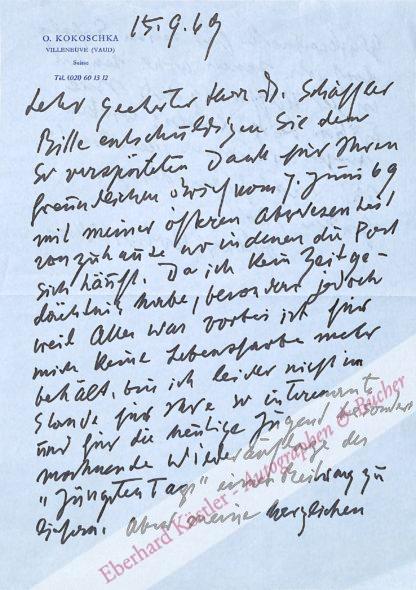 15.9.69
O. KOKOSCHKA
VILLENEUVE (VAUD)
Suisse
Tél. (021) 60 13 12
Sehr geehrter Herr Dr. Schäffer
Bitte entschuldigen Sie den
so verspäteten Dank für Ihren
freundlichen Brief vom 7. Juni 69
mit meiner öfteren Abwesenheit
von zuhause wo indenen die Post
sich häuft. Da ich kein Zeitge-
dächtnis habe, besonders jedoch
weil Alles was vorbei ist für
mich keine Lebensfarbe mehr
behält, bin ich leider nicht im
Stande für Ihre so interessante
und für die heutige Jugend besonders
mahnende Wiederauflage des
"Jüngsten Tags" einen Beitrag zu
liefern. Aber meine herzlichen
Eberhard Köstler - Autographen & Bücher